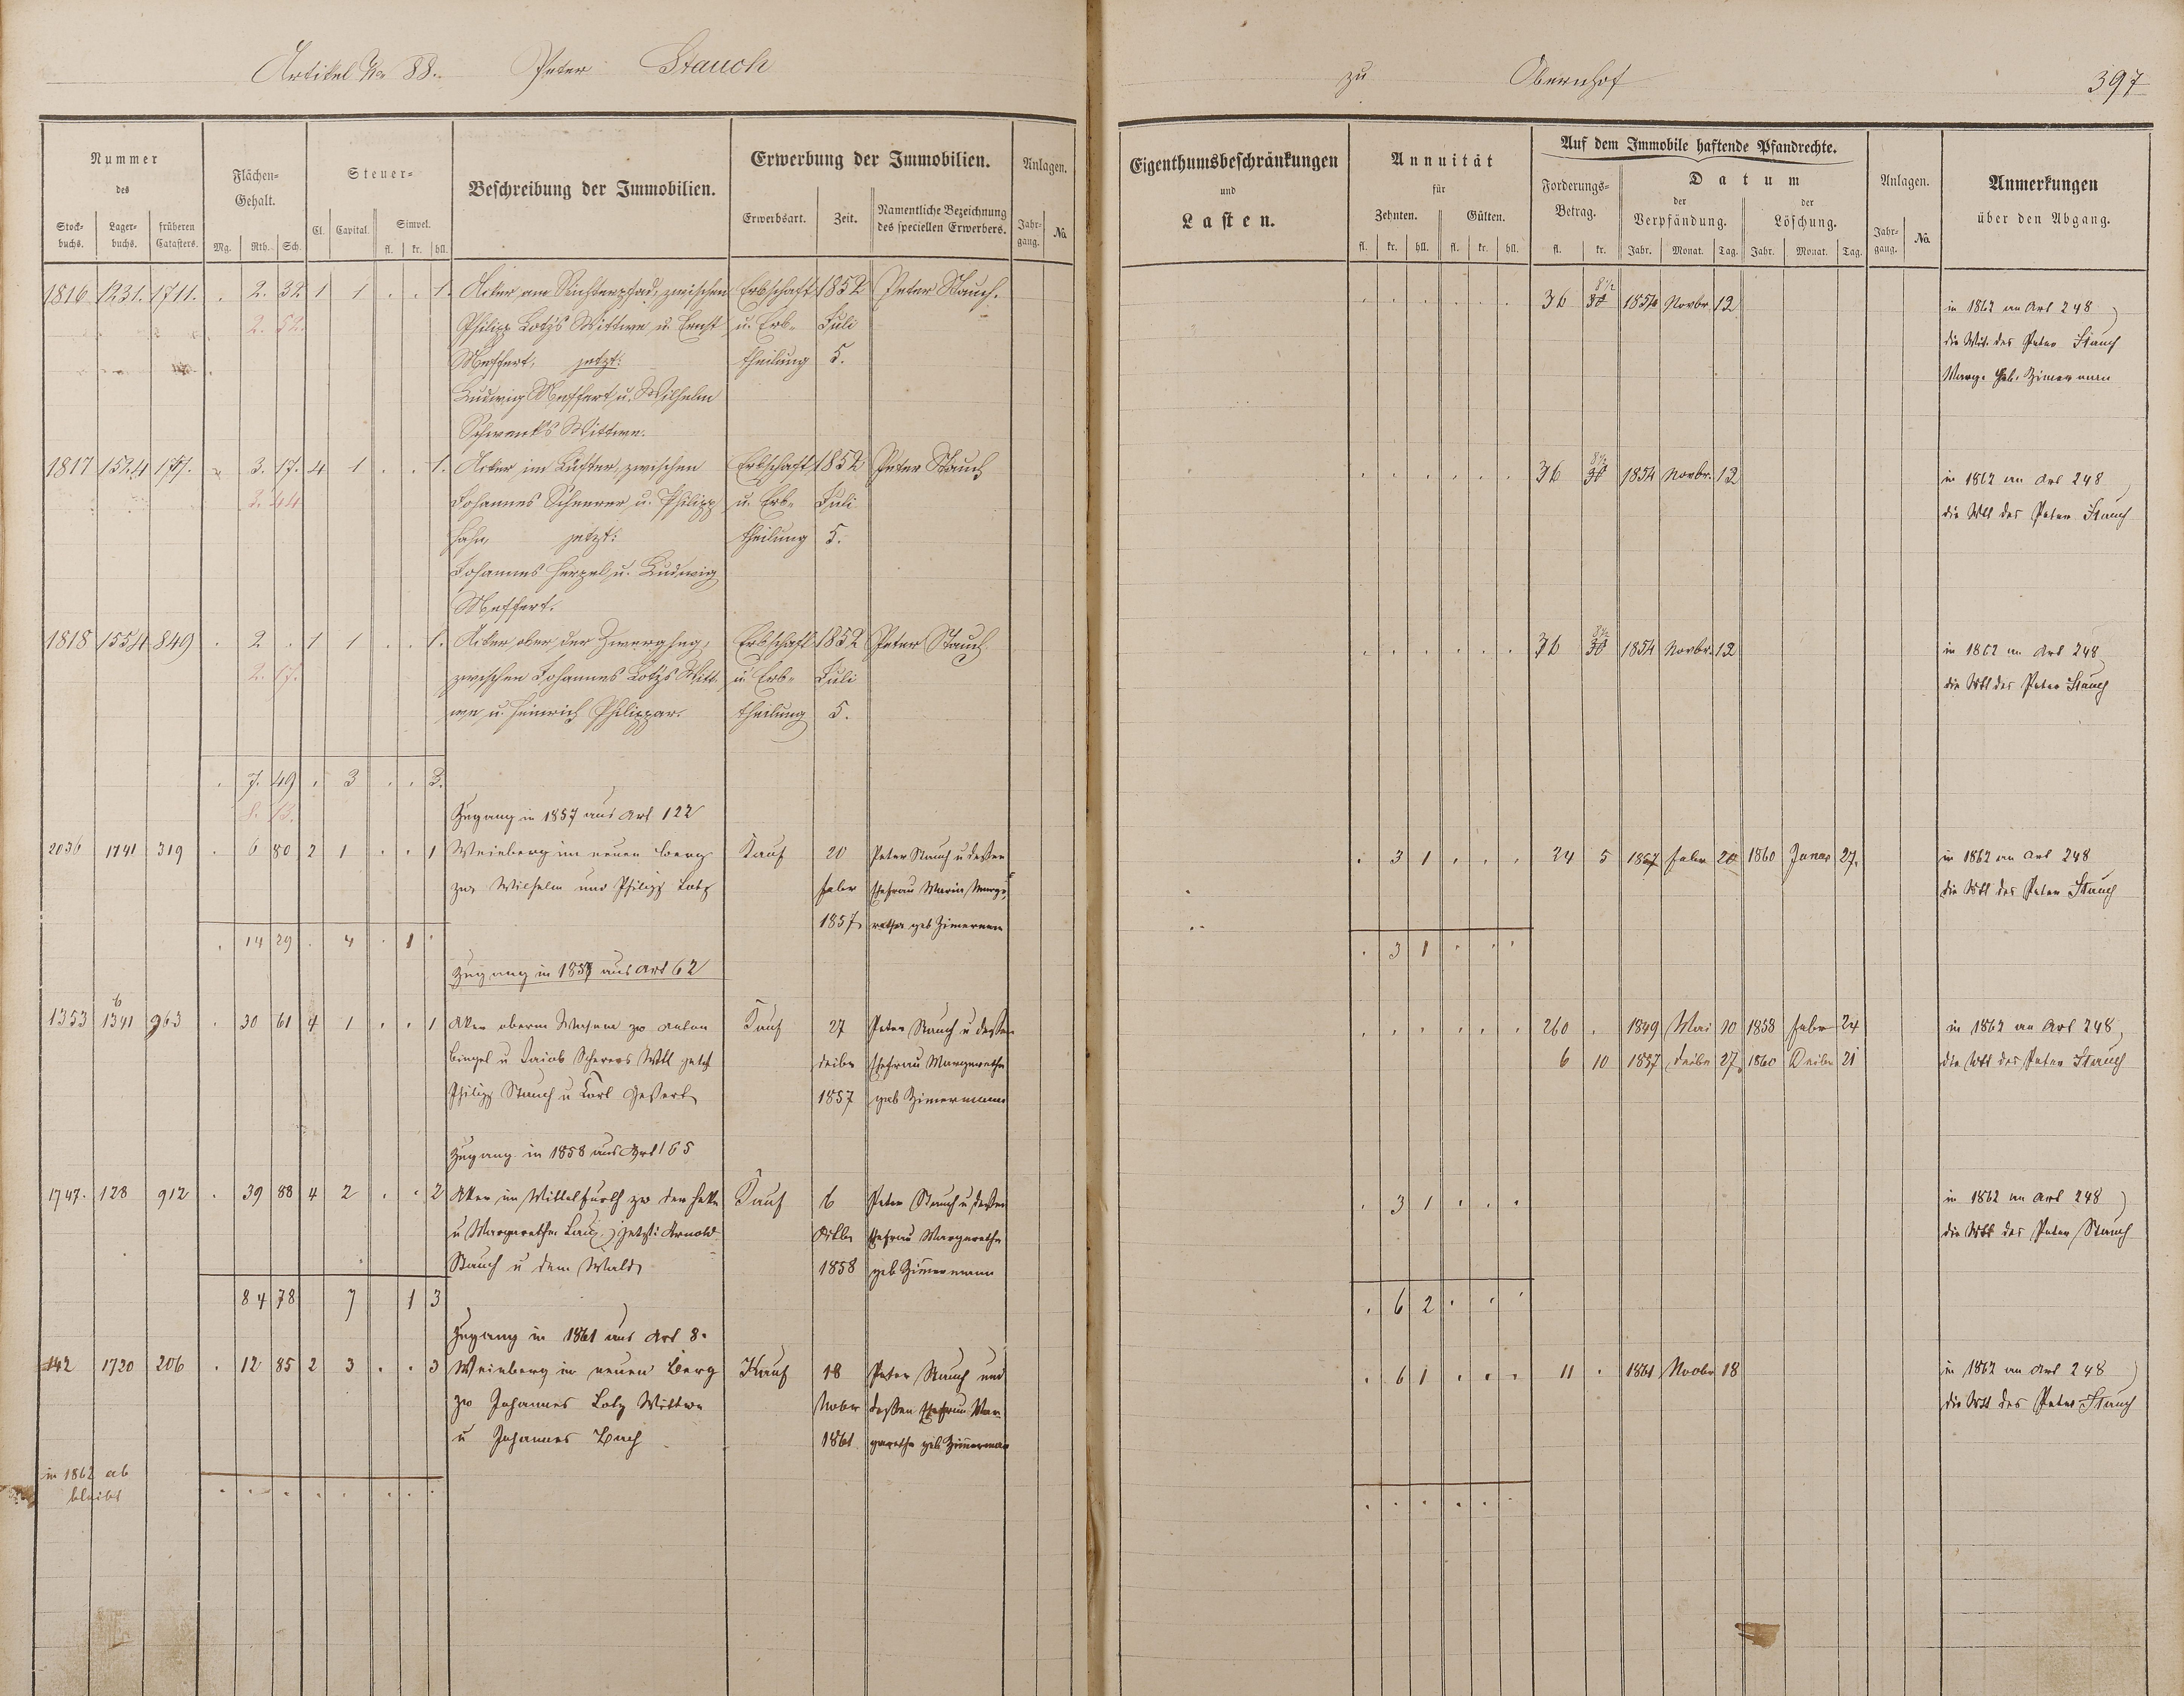 Artikel No 88. Peter Stauch
zu Obernhof 397
Nummer
des
Stock-
buchs.
Lager-
buchs.
früheren
Catasters.
Flächen-
Gehalt.
Mg. Rth. Sch.
Steuer-
Cl. Capital.
Simpel.
fl. kr. hll.
Beschreibung der Immobilien.
Erwerbung der Immobilien.
Erwerbsart. Zeit.
Namentliche Bezeichnung
des speciellen Erwerbers.
Anlagen.
Jahr-
gang.
No
Eigenthumsbeschränkungen
und
Lasten.
Annuität
für
Zehnten. Gülten.
fl. kr. hll. fl. kr. hll.
Auf dem Immobile haftende Pfandrechte.
Forderungs-
Betrag.
fl. kr.
Datum
der
Verpfändung.
der
Löschung.
Jahr. Monat. Tag. Jahr. Monat. Tag.
Anlagen.
Jahr-
gang.
No
Anmerkungen
über den Abgang.
1816 1231. 1711. . 2. 32 1 1 . . 1. Acker am Kirchenpfad, zwischen Erbschaft 1852 Peter Stauch. 36 8½ 1854 Novbr. 12 in 1862 an Art 248
2. 52. Philipp Lotz's Wittwe u. Ernst u. Erb- Juli die Wit. des Peter Stauch
Meffert, jetzt: theilung 5. Marg. geb. Zimermann
Ludwig Meffert u. Wilhelm
Schwenk's Wittwe.
1817 1524 3. 17. 4 1 . . 1. Acker im Küster, zwischen Erbschaft 1852 Peter Stauch 36 8½ 1854 Novbr. 12 in 1862 an Art 248
3. 44 Johannes Scheerer u. Philipp u. Erb- Juli die Wtt des Peter Stauch
Hahn, jetzt: theilung 5.
Johannes Herzel u. Ludwig
Meffert.
1818 1554 849 . 2 . 1 1 . . 1. Acker ober der Zwerghey, Erbschaft 1852 Peter Stauch 36 8½ 1854 Novbr. 12 in 1862 an Art 248
2. 17. zwischen Johannes Lotz's Witt- u. Erb- Juli die Wtt des Peter Stauch
we u. Heinrich Philippar. theilung 5.
. 7. 49 . 3 . . 3.
8. 13. Zugang in 1857 aus Art 122
2036 1741 319 . 6 80 2 1 . . 1 Weinberg im neuen Berg Kauf 20 Peter Stauch u deßen . 3 1 . . . 24 5 1857 Febr 20 1860 Januar 27. in 1862 an Art 248
zw. Wilhelm und Philipp Lotz Febr Ehefrau Maria Marga- die Wtt des Peter Stauch
1857 retha geb Zimerman
. 14 29 . 4 . 1 . . 3 1 . . .
Zugang in 1857 aus Art 62
1353 1341 963 . 30 61 4 1 . . 1 Aker oberm Kauf 27 Peter Stauch u deßen 260 . 1849 Mai 10 1858 Febr 24 in 1862 an Art 248
Bingel u Jacob Scherers Wtt jetzt Ehefrau Margaretha 6 10 1857 27 1860 21 die Wtt des Peter Stauch
Philipp Stauch u Karl 1857 geb Zimermann
Zugang in 1858 aus Art 165
1747. 128 912 . 39 88 4 2 . . 2 Aker im zw der Hecke Kauf 6 Peter Stauch u deßen . 3 1 . . . in 1862 an Art 248
u Margaretha Laux, jetzt: Arnold Ehefrau Margaretha die Wtt des Peter Stauch
Stauch u dem Wald, 1858 geb Zimermann
84 78 7 1 3 . 6 2 . . .
Zugang in 1861 aus Art 8.
142 1720 206 . 12 85 2 3 . . 3 Weinberg in neuen Berg Kauf 18 Peter Stauch und . 6 1 . . . 11 . 1861 Novbr 18 in 1862 an Art 248
zw Johannes Lotz Wittwe Novbr deßen Ehefrau Mar- die Wtt des Peter Stauch
u Johannes Bach 1861 garetha geb Zimerman
in 1862 ab
bleibt